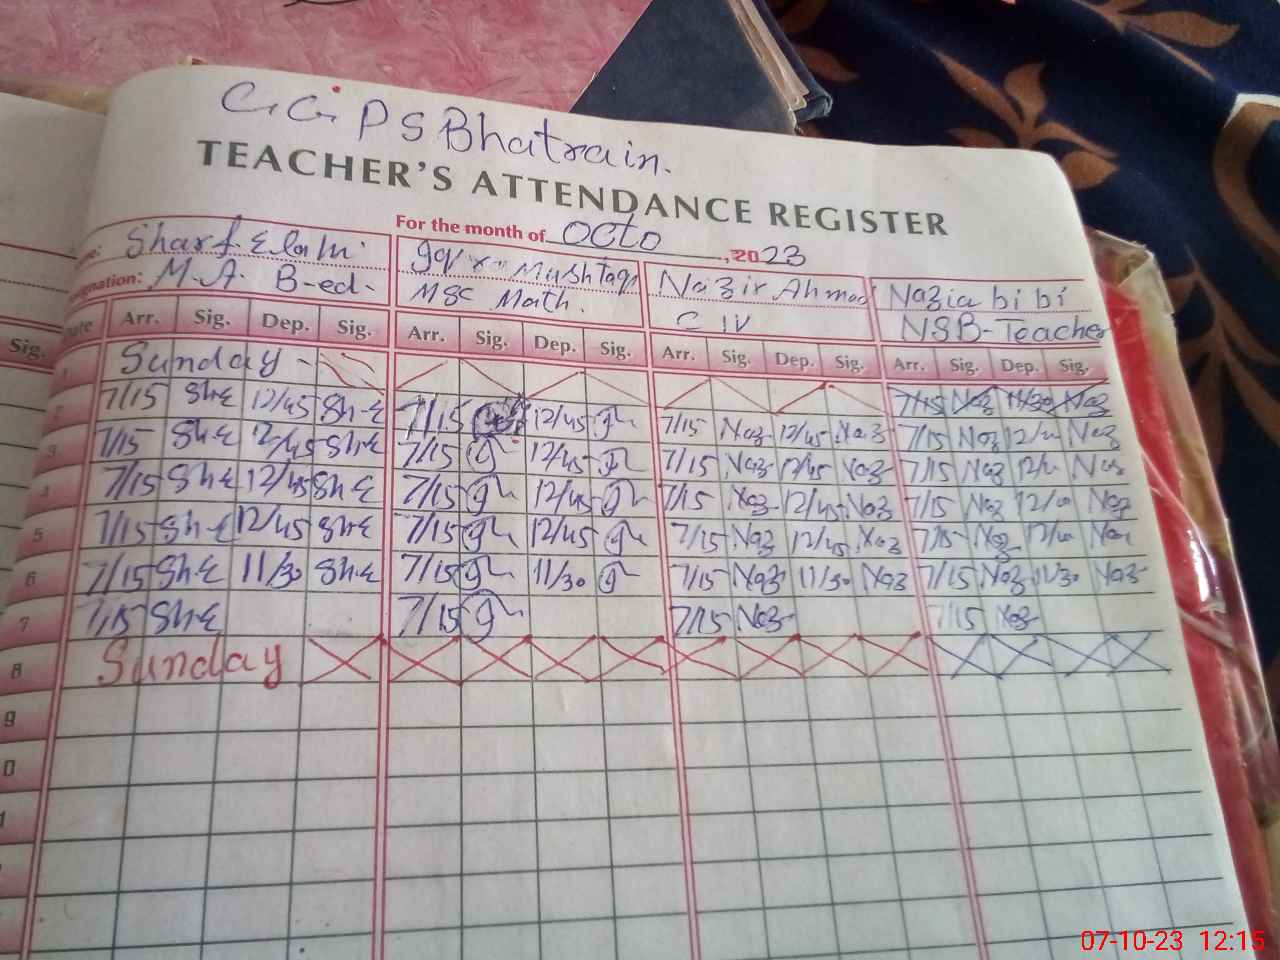 G.G.P S Bhatrain.
TEACHER'S ATTENDANCE REGISTER
For the month of Octo, 2023
Sharf Elahi Mushtaq Nazir Ahmad Nazia bi bi
M.A. B-ed. MSC Math. C IV NSB-Teacher
Sig. Date Arr. Sig. Dep. Sig. Arr. Sig. Dep. Sig. Arr. Sig. Dep. Sig. Arr. Sig. Dep. Sig.
1 Sunday
2 7/15 ShE 12/45 Sh-E 7/15 12/45 7/15 Naz 12/45 Naz 7/15 Naz
3 7/15 ShE 12/45 ShE 7/15 12/45 7/15 Naz 12/45 Naz 7/15 Naz
4 7/15 ShE 12/45 ShE 7/15 12/45 7/15 Naz 12/45 Naz 7/15 Naz
5 7/15 Sh-E 12/45 ShE 7/15 12/45 7/15 Naz 12/45 Naz 7/15 Naz
6 7/15 ShE 11/30 ShE 7/15 11/30 7/15 Naz 11/30 Naz 7/15 Naz 11/30 Naz
7 7/15 ShE 7/15 7/15 Naz 7/15 Naz
8 Sunday
9
0
1
07-10-23 12:15